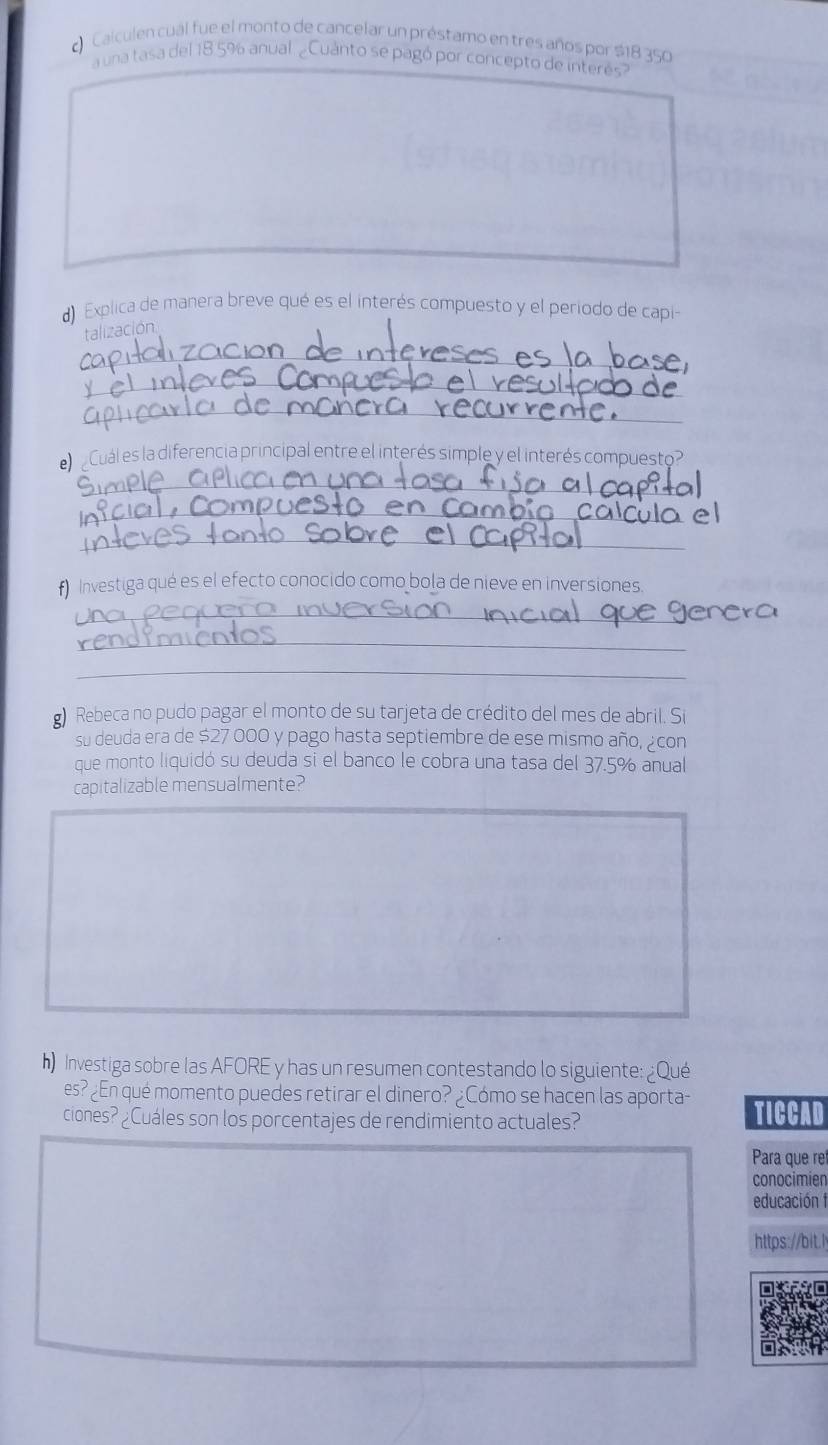 c) Calculen cuál fue el monto de cancelar un préstamo en tres años por $18 350
a una tasa del 18.5% anual. ¿Cuánto se pagó por concepto de interés?
d) Explica de manera breve qué es el interés compuesto y el periodo de capi-
talización.
capitalizacion de intereses es la base,
y el interes Compuesto el resultado de
aplicarla de manera recurrente.
e) ¿Cuál es la diferencia principal entre el interés simple y el interés compuesto?
Simple aplica en una tasa fija al capital
inicial, compuesto en cambio calcula el
interes tanto sobre el capital
f) Investiga qué es el efecto conocido como bola de nieve en inversiones.
una pequera inversion inicial que genera
rendimientos
g) Rebeca no pudo pagar el monto de su tarjeta de crédito del mes de abril. Si
su deuda era de $27 000 y pago hasta septiembre de ese mismo año, ¿con
que monto liquidó su deuda si el banco le cobra una tasa del 37.5% anual
capitalizable mensualmente?
h) Investiga sobre las AFORE y has un resumen contestando lo siguiente: ¿Qué
es? ¿En qué momento puedes retirar el dinero? ¿Cómo se hacen las aporta-
ciones? ¿Cuáles son los porcentajes de rendimiento actuales?
TICCAD
Para que ref
conocimien
educación f
https://bit.ly